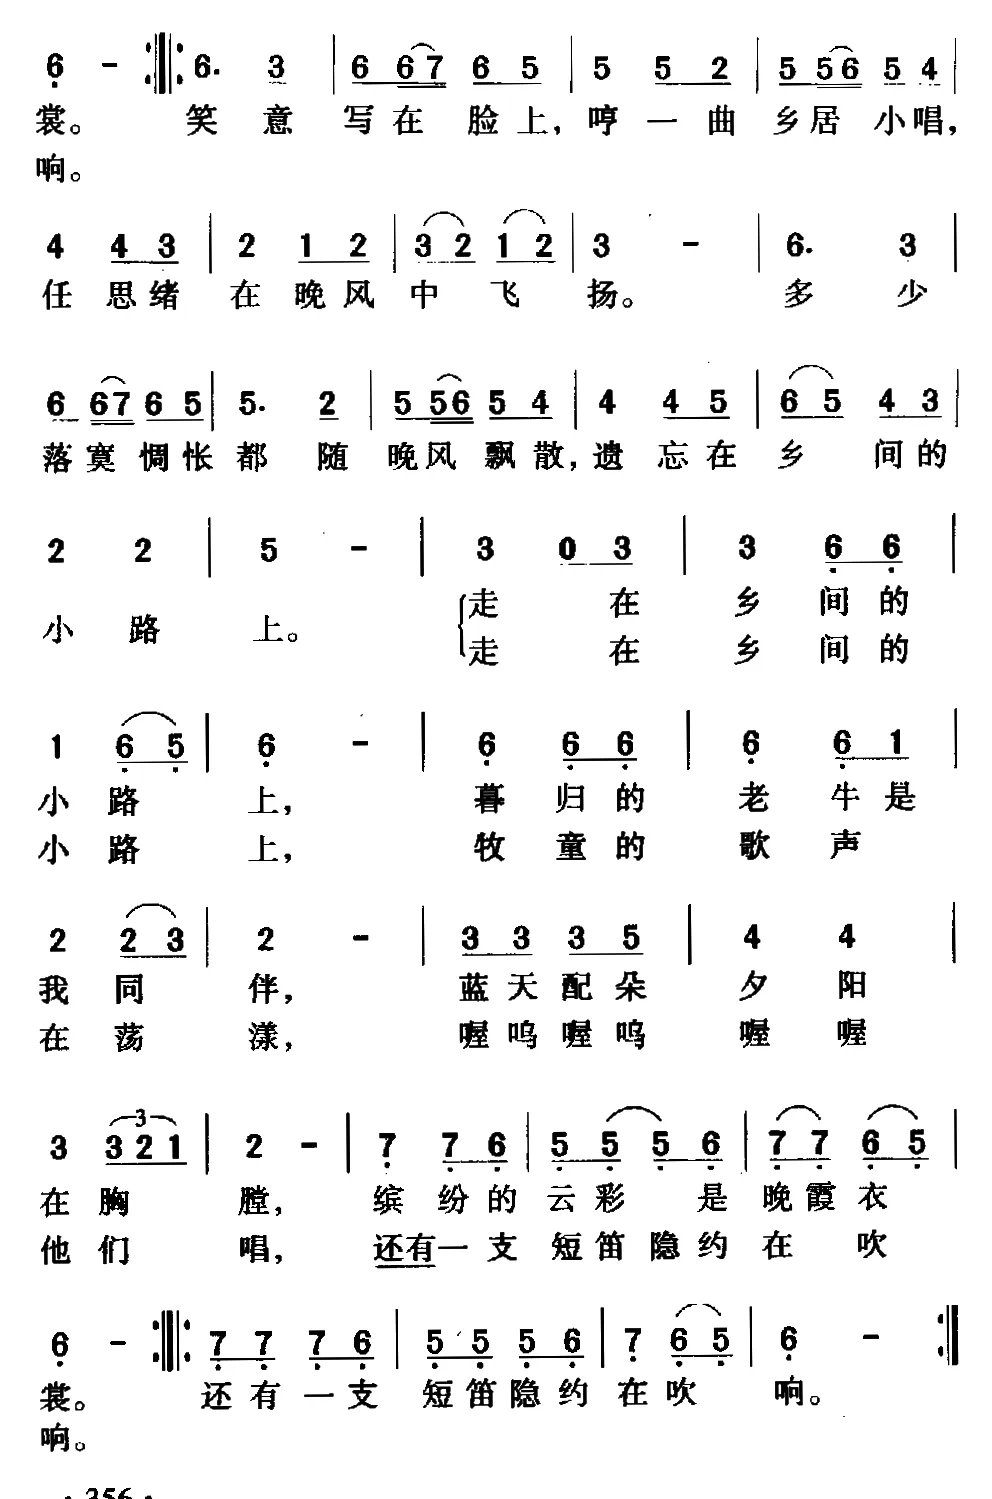 6 - 6. 3 6 6 7 6 5 5 5 2 5 5 6 5 4
裳。 笑 意 写 在 脸 上， 哼 一 曲 乡 居 小 唱，
响。
4 4 3 2 1 2 3 2 1 2 3 - 6. 3
任 思 绪 在 晚 风 中 飞 扬。 多 少
6 6 7 6 5 5. 2 5 5 6 5 4 4 4 5 6 5 4 3
落 寞 惆 怅 都 随 晚 风 飘 散， 遗 忘 在 乡 间 的
2 2 5 - 3 0 3 3 6 6
小 路 上。 走 在 乡 间 的
走 在 乡 间 的
1 6 5 6 - 6 6 6 6 6 1
小 路 上， 暮 归 的 老 牛 是
小 路 上， 牧 童 的 歌 声
2 2 3 2 - 3 3 3 5 4 4
我 同 伴， 蓝 天 配 朵 夕 阳
在 荡 漾， 喔 呜 喔 呜 喔 喔
3
3 3 2 1 2 - 7 7 6 5 5 5 6 7 7 6 5
在 胸 膛， 缤 纷 的 云 彩 是 晚 霞 衣
他 们 唱， 还 有 一 支 短 笛 隐 约 在 吹
6 - 7 7 7 6 5 5 5 6 7 6 5 6 -
裳。 还 有 一 支 短 笛 隐 约 在 吹 响。
响。
· 356 ·